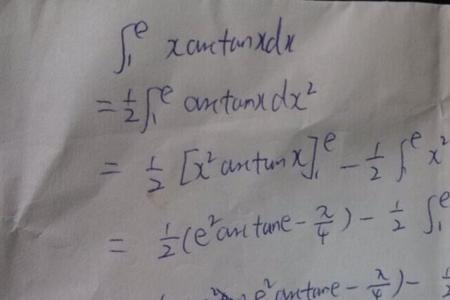 ∫₁ᵉ x arctanx dx
= ½ ∫₁ᵉ arctanx dx²
= ½ [x² arctan x]₁ᵉ − ½ ∫₁ᵉ x²
= ½ (e² arctane − π/4) − ½ ∫₁ᵉ
e² arctane − π/4) −